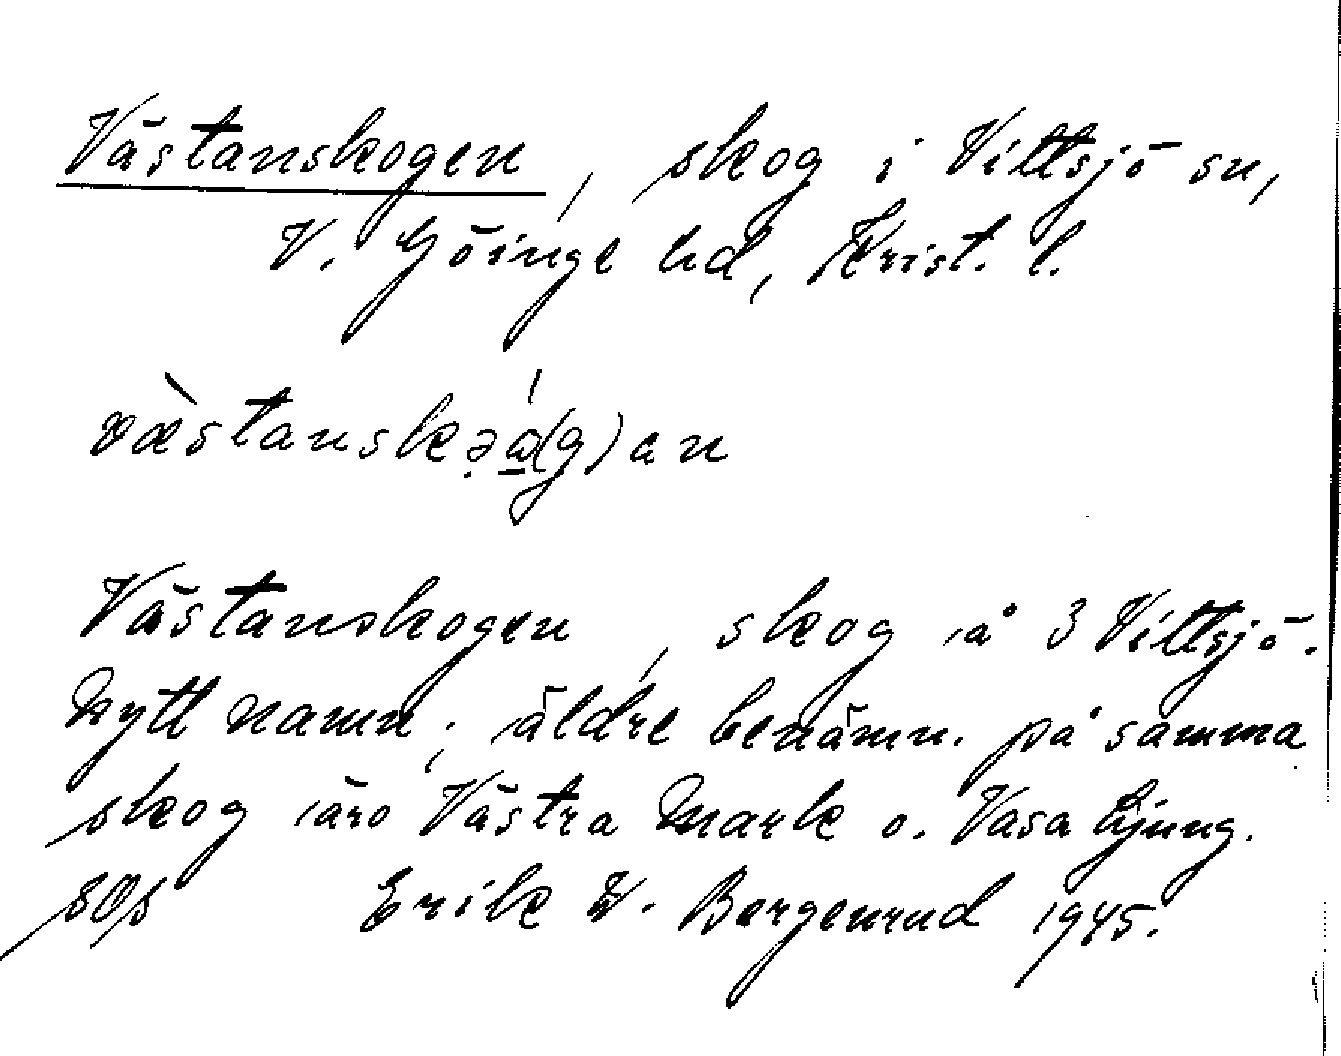 Västanskogen, skog i Vittsjö sn,
V. Göinge hd, Krist. l.
væ̀stanskə̣á̱(g)an
Västanskogen, skog å 3 Vittsjö.
Nytt namn; äldre benämn. på samma
skog äro Västra Mark o. Vasaljung.
SOS Erik W. Bergenrud 1945.